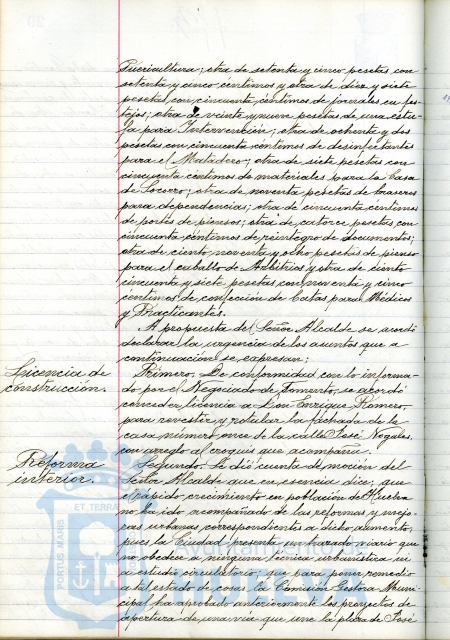 Puericultura; otra de setenta y cinco pesetas con
setenta y cinco céntimos y otra de diez y siete
pesetas con cincuenta céntimos de jornales en fes-
tejos; otra de veinte y nueve pesetas de una estu-
fa para Intervención; otra de ochenta y dos
pesetas con cincuenta céntimos de desinfectantes
para el Matadero; otra de siete pesetas con
cincuenta céntimos de materiales para la Casa
de Socorro; otra de noventa pesetas de braseros
para dependencias; otra de cincuenta céntimos
de portes de piensos; otra de catorce pesetas con
cincuenta céntimos de reintegro de documentos;
otra de ciento noventa y ocho pesetas de pienso
para el caballo de Arbitrios y otra de ciento
cincuenta y siete pesetas con noventa y cinco
céntimos de confección de batas para Médicos
y Practicantes.
A propuesta del Señor Alcalde se acordó
declarar la urgencia de los asuntos que a
continuación se expresan:
Licencia de
construcción.
Primero. De conformidad con lo informa-
do por el Negociado de Fomento, se acordó
conceder licencia a Don Enrique Romero,
para revestir y rotular la fachada de la
casa número once de la calle José Nogales,
con arreglo al croquis que acompaña.
Reforma
interior.
Segundo. Se dió cuenta de moción del
Señor Alcalde que en esencia dice: que
el rápido crecimiento en población de Huelva
no ha ido acompañado de las reformas y mejo-
ras urbanas correspondientes a dicho aumento,
pues la Ciudad presenta un trazado viario que
no obedece a ninguna técnica urbanística ni
a estudio circulatorio, que para poner remedio
a tal estado de cosas la Comisión Gestora Muni-
cipal ha aprobado anteriormente los proyectos de
apertura de una vía que une la plaza de José
PORTUS MARIS
ET TERRAE
Ayuntamiento de